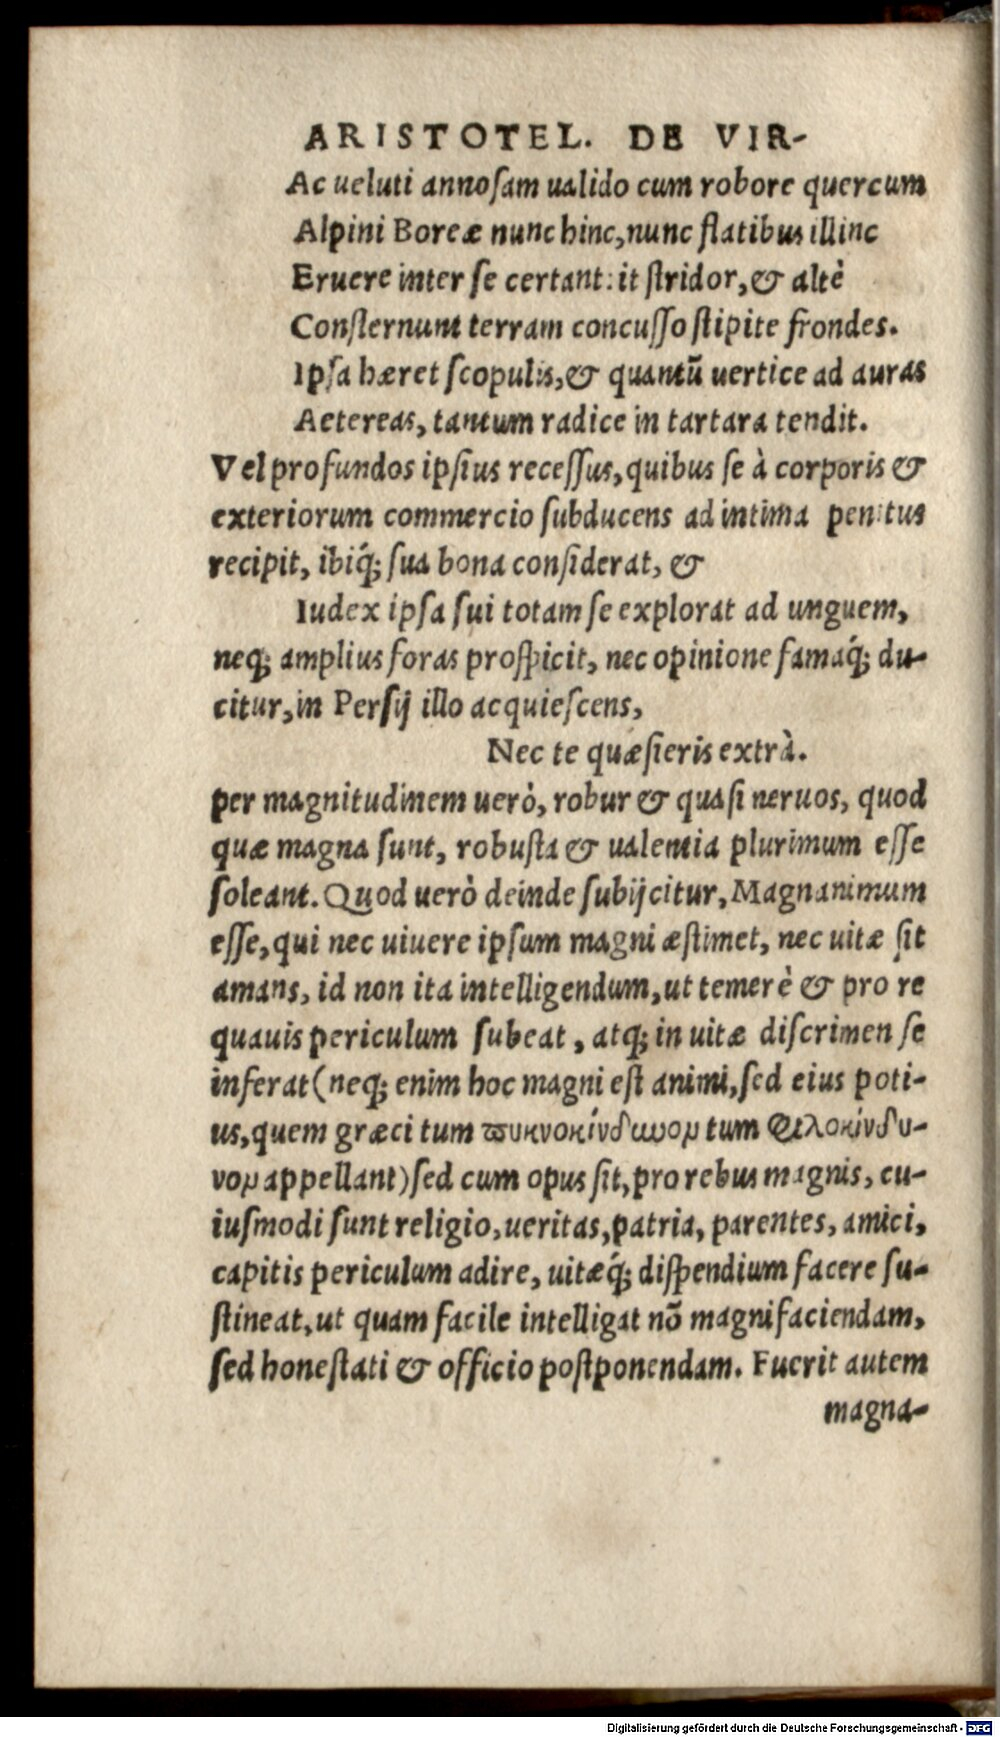 ARISTOTEL. DE VIR-
Ac ueluti annoſam ualido cum robore quercum
Alpini Boreæ nunc hinc, nunc flatibus illinc
Eruere inter ſe certant: it ſtridor, & altè
Conſternunt terram concuſſo ſtipite frondes.
Ipſa hæret ſcopulis, & quantū uertice ad auras
Aetereas, tantum radice in tartara tendit.
Vel profundos ipſius receſſus, quibus ſe à corporis &
exteriorum commercio ſubducens ad intima penitus
recipit, ibiq́; ſua bona conſiderat, &
Iudex ipſa ſui totam ſe explorat ad unguem,
neq; amplius foras proſpicit, nec opinione famaq́; du-
citur, in Perſij illo acquieſcens,
Nec te quæſieris extrà.
per magnitudinem uerò, robur & quaſi neruos, quod
quæ magna ſunt, robuſta & ualentia plurimum eſſe
ſoleant. Quod uerò deinde ſubijcitur, Magnanimum
eſſe, qui nec uiuere ipſum magni æſtimet, nec uitæ ſit
amans, id non ita intelligendum, ut temerè & pro re
quauis periculum ſubeat, atq; in uitæ diſcrimen ſe
inferat (neq; enim hoc magni eſt animi, ſed eius poti-
us, quem græci tum πυκνοκίνδωνον tum φιλοκίνδυ-
νον appellant) ſed cum opus ſit, pro rebus magnis, cu-
iuſmodi ſunt religio, ueritas, patria, parentes, amici,
capitis periculum adire, uitæq́; diſpendium facere ſu-
ſtineat, ut quam facile intelligat nō magnifaciendam,
ſed honeſtati & officio poſtponendam. Fuerit autem
magna-
Digitalisierung gefördert durch die Deutsche Forschungsgemeinschaft - DFG